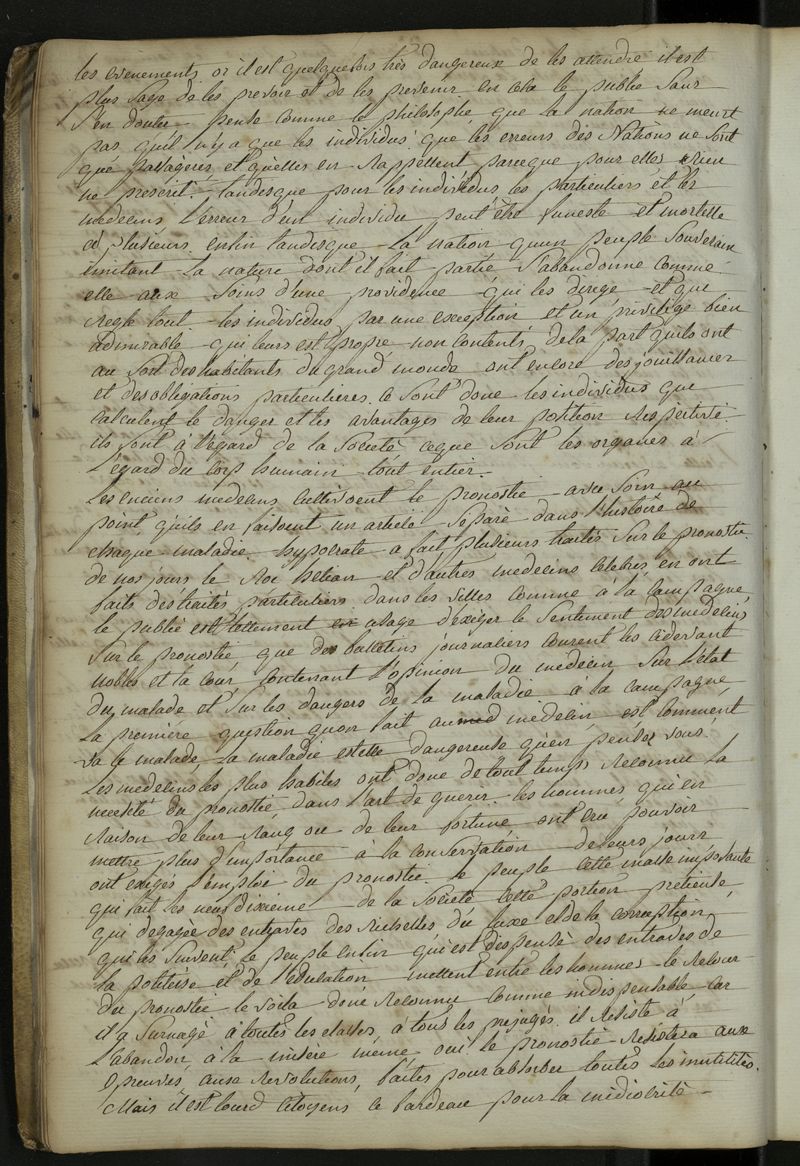 les evenements or il est quelquefois très dangereux de les attendre il est
plus sage de les prevoir et de les prevenir en cela le public sans
s'en douter pense comme le philosophe que la nation ne meurt
pas qu'il n'y a que les individus que les erreurs des Nations ne sont
que passageres et qu'elles en rappellent parceque pour elles rien
ne prescrit. tandisque pour les individus les particuliers et les
medecins l'erreur d'un individu peut être funeste et mortelle
à plusieurs enfin tandisque la nation qu'un peuple souverain
imitant la nature dont il fait partie s'abandonne comme
elle aux soins d'une providence qui les dirige et qui
regle tout les individus par une exception et un privilège bien
admirable qui leurs est propre non contents de la part qu'ils ont
au sort des habitants du grand monde ont encore des jouissances
et des obligations particulieres. ce sont donc les individus qui
calculent le danger et les avantages de leur position respective.
ils sont à l'égard de la Societé ceque sont les organes à
l'egard du corps humain tout entier.
les enciens medecins cultivoient le pronostic avec soin au
point qu'ils en faisoient un article separé dans l'histoire de
chaque maladie. hypocrate a fait plusieurs traités sur le pronostic.
de nos jours le Roi et d'autres medecins celebres en ont
faits des traités particuliers dans les villes comme à la campagne
le public est tellement en usage d'exiger le sentiment des medecins
sur le pronostic que des bulletins journaliers courent les cidevant
nobles et la cour contenant l'opinion du medecin sur l'état
du malade et sur les dangers de la maladie à la campagne
la premiere question quon fait au medecin est comment
va le malade, la maladie estelle dangereuse qu'en pensez vous.
les medecins les plus habiles ont donc de tout temps reconnu la
necesité du pronostic dans l'art de guerir. les hommes qui en
raison de leur rang ou de leur fortune ont cru pouvoir
mettre plus d'importance à la conservation de leurs jours
ont exigés l'emploi du pronostic. le peuple cette masse imposante
qui fait les neuf dixieme de la Societé cette portion pretieuse,
qui degagée des entraves des richesses du luxe et de la corruption
qui les suivent, le peuple enfin qui est dispensé des entraves de
la politesse et de l'education mettent entre les hommes le
du pronostic le voila donc reconnu comme indispensable, car
il a surnagé à toutes les classes, à tous les prejugés. il resiste à
l'abandon, à la misère même, oui le pronostic resistera aux
epreuves, aux revolutions, faites pour absorber toutes les inutilités.
Mais il est lourd citoyens ce fardeau pour la médiocrité